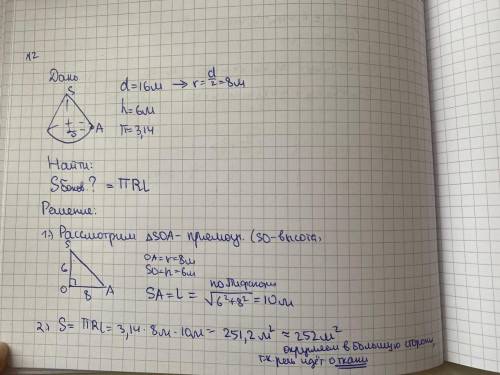 №2
Дано
S
A
O
d=16м → r=d/2=8м
h=6м
π=3,14
Найти:
Sбоков.? = πRL
Решение:
1.) Рассмотрим △SOA - прямоуг. (SO-высота)
S
6
O
8
A
OA=r=8м
SO=h=6м
по Пифагору
SA=L= √6²+8² = 10м
2.) S= πRL= 3,14 · 8м · 10м = 251,2м² ≈ 252м²
округляем в большую сторону,
т.к. речь идёт о ткани